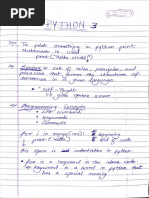 PYTHON 3
To print something in python print
statement is used
print("Hello World")
Syntax is set of rules, principles and
processes that govern the structure of
sentences in a given language
"Self-Taught"
Programming Concepts
Keywords
Comments
for i in
end of code
this space is indentation in python
for is a keyword in the above code
keyword is a word in python that
has a special meaning